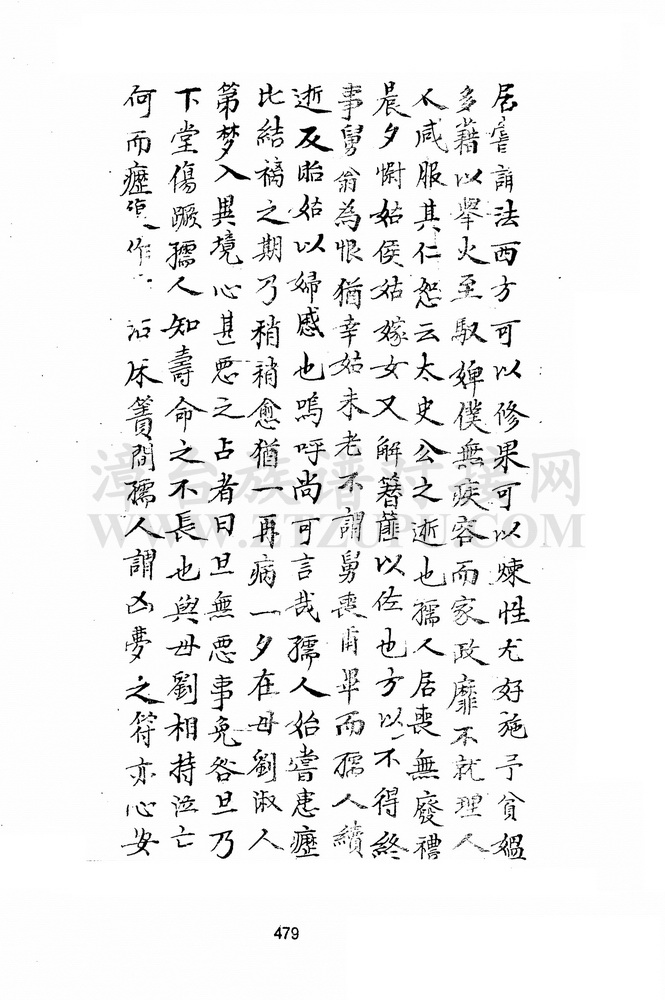 居嘗謂法西方可以修果可以煉性尤好施予貧媼
多藉以舉火至馭婢僕無疾容而家政靡不就理人
人咸服其仁恕云太史公之逝也孺人居喪無廢禮
晨夕慰姑侯姑嫁女又解簪以佐也方以不得終
事舅翁為恨猶幸姑未老不謂舅喪甫畢而孺人續
逝反貽姑以婦慼也嗚呼尚可言哉孺人始嘗患瘧
比結褵之期乃稍稍愈猶一再病一夕在母劉淑人
第夢入異境心甚惡之占者曰旦無惡事免咎旦乃
下堂傷蹶孺人知壽命之不長也與母劉相持泣亡
何而瘧作床簀間孺人謂凶夢之符亦心安
漳台族谱对接网
WWW.ZTZUPU.COM
479